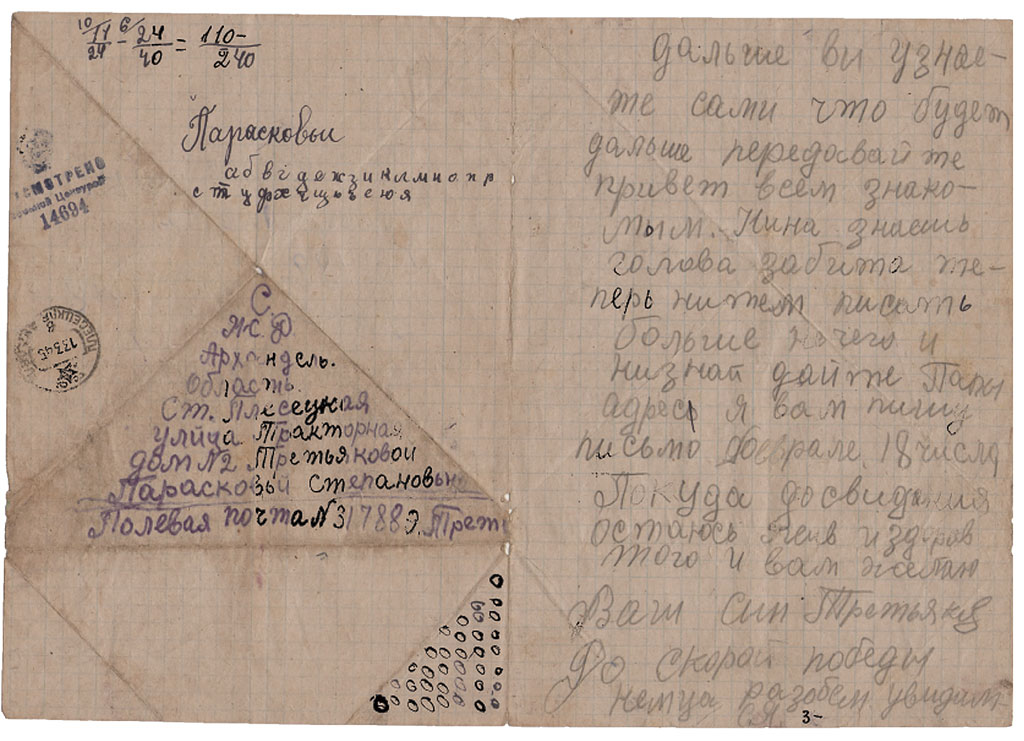 10/11/24 - 6/24/40 = 110-/240
Парасковьи
а б в г д е ж з и к л м н о п р
с т у ф х ц
СМОТРЕНО
Военной Цензурой
14694
ПЛЕСЕЦКАЯ
13345
8
С.
Ж Д
Архандель.
Область.
Ст. Плесецкая
улйца Тракторная
дом №2 Третьяковои
Парасковьи степановьн
Полевая почта №31788 Э. Треть
дальше ви узнае-
те сами что будет
дальше передавайте
привет всем знако-
мым. Нина знаешь
голова забита те-
перь нитем писать
больше нечего и
низнаи дайте Папы
адрес я вам пишу
письмо феврале 18 числа
Покуда досвидания
остаюсь жив издоров
того и вам желаю
Ваш син Третьяков
До скорай победы
немца разобем увидим-
ся 3-